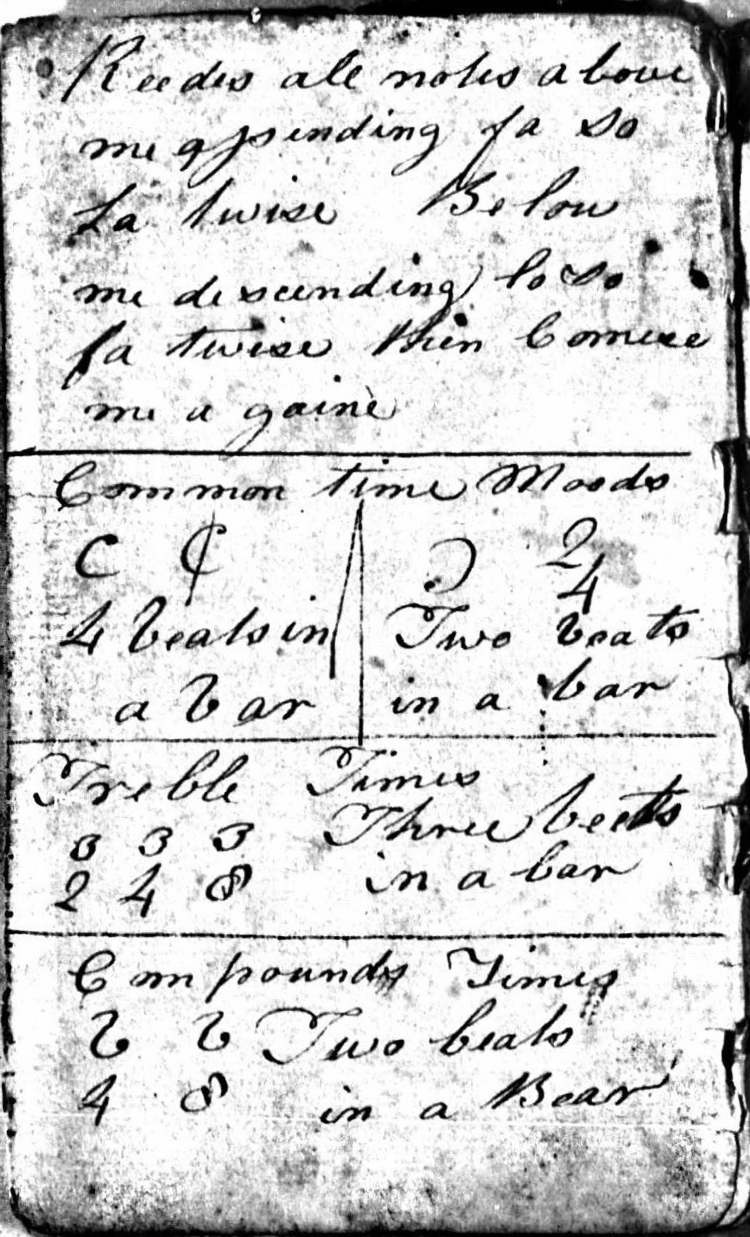 Reedes all notes above
me asending fa so
La twise Below
me descending lo so
fa twise then Comese
me a gaine
Common time Moods
C ₵ Ɔ 2/4
4 beats in Two beats
a bar in a bar
Treble Times
3 3 3 Three beets
2 4 8 in a bar
Compounds Times
6 6 Two beats
4 8 in a Bear